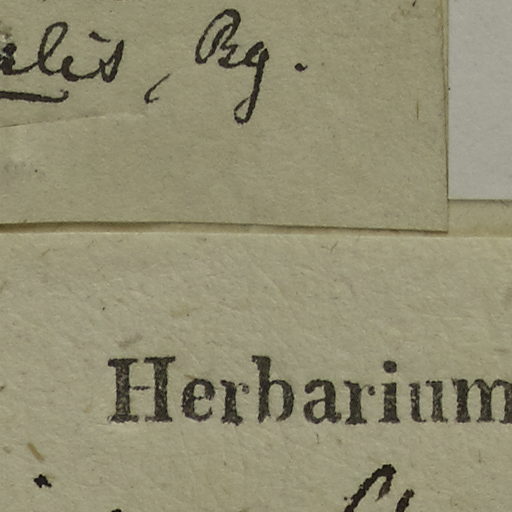 alis, Rg.
Herbarium